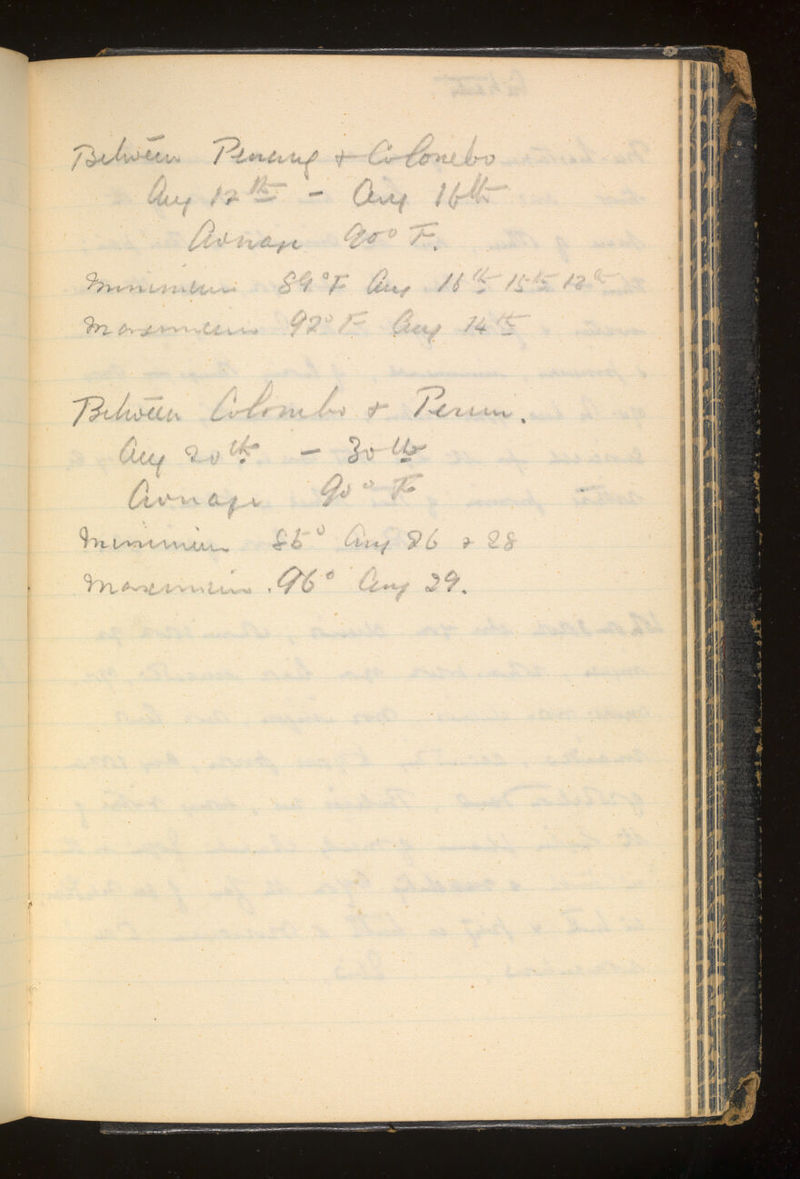 Between Penang & Colombo
Aug 12th - Aug 16th
Average 90° F.
Minimum 89°F Aug 16th 15th 12th
Maximum 92° F Aug 14th
Between Colombo & Perim.
Aug 20th - 30th
Average 90° F
Minimum 85° Aug 26 & 28
Maximum. 96° Aug 29.